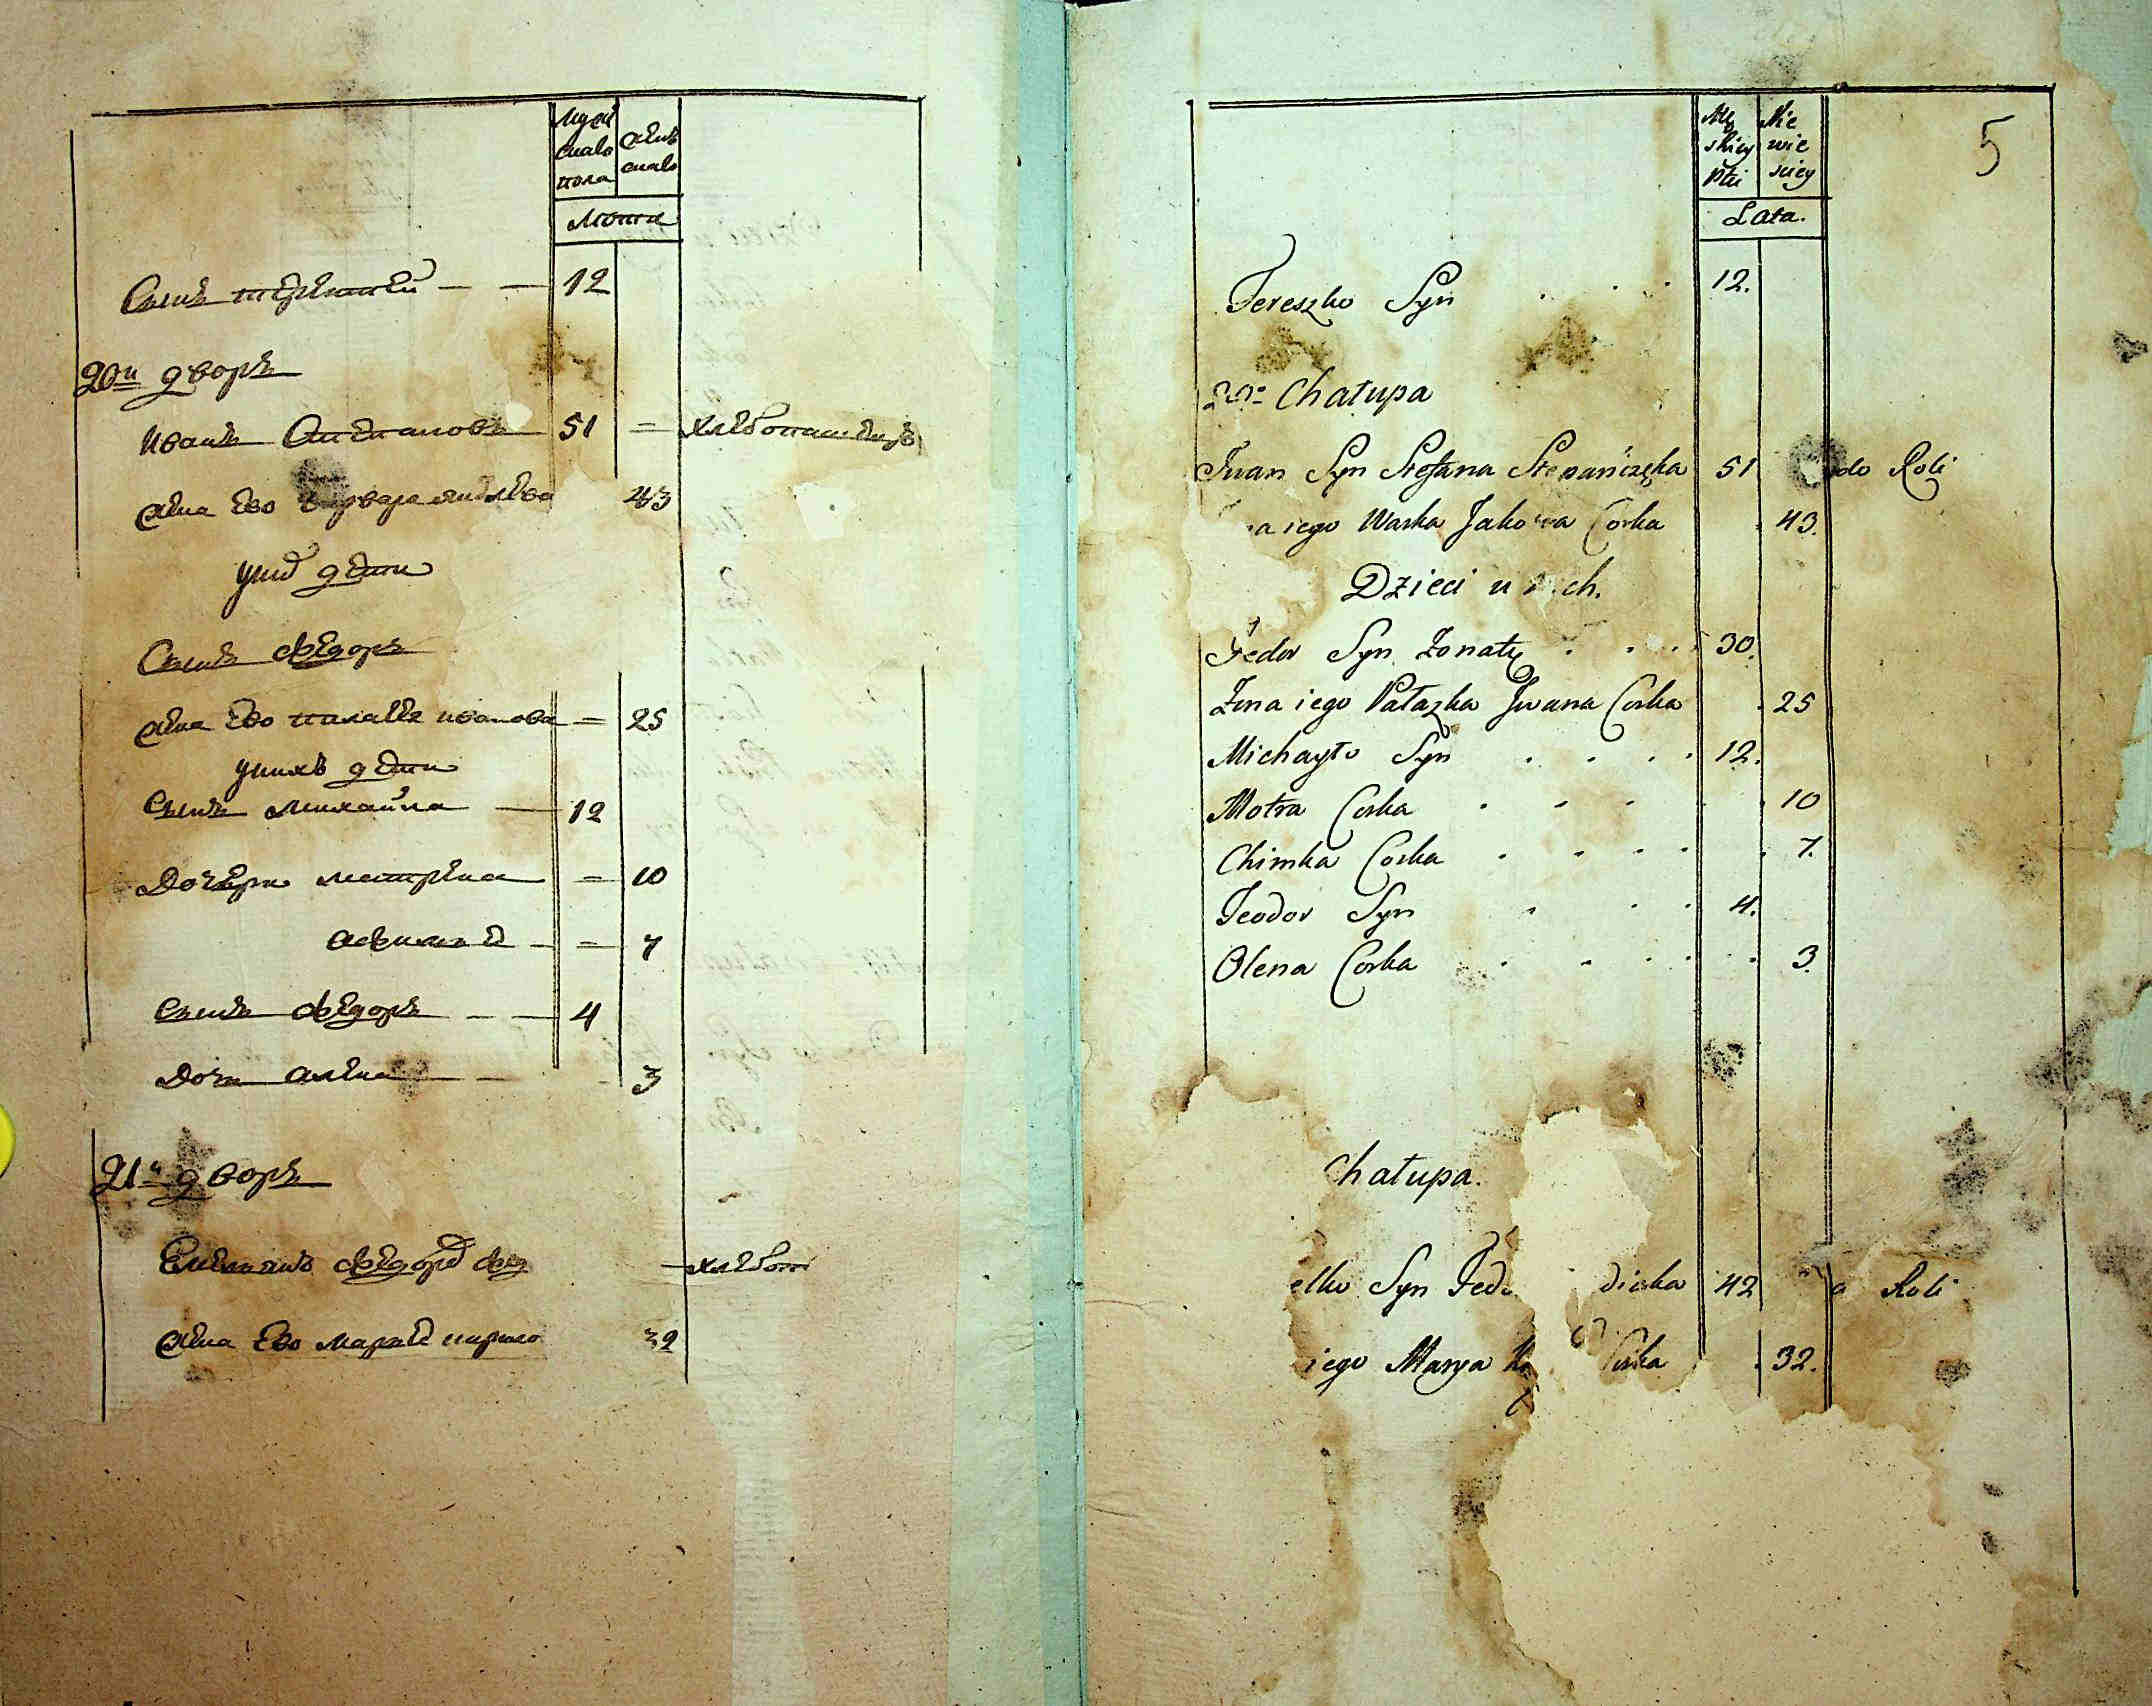 Мужеска пола
Женска
Лета
Сынъ терентей 12
20й дворъ
Иванъ Степановъ 51 хлебопашецъ
жена ево 43
у них дети
Сынъ Федоръ
жена ево палагея иванова 25
у нихъ дети
Сынъ михайла 12
Дочери матрена 10
афимья 7
Сынъ Федоръ 4
Дочь алена 3
21й дворъ
Емельянъ Федоров хлебоп
жена ево марья 32
5
Męskiey Płci
Niewieściey
Lata.
Tereszko Syn 12.
20. Chałupa
Iwan Syn Stefana Stepańczęka 51 do Roli
a iego Warka Jakowa Corka 43.
Dzieci u ch.
Fedor Syn Żonaty 30.
Żona iego Pałazka Iwana Corka 25
Michayło Syn 12.
Motra Corka 10
Chimka Corka 7.
Teodor Syn 4.
Olena Corka 3.
Chałupa.
elko Syn Fedo diuka 42 a Roli
iego Marya Corka 32.